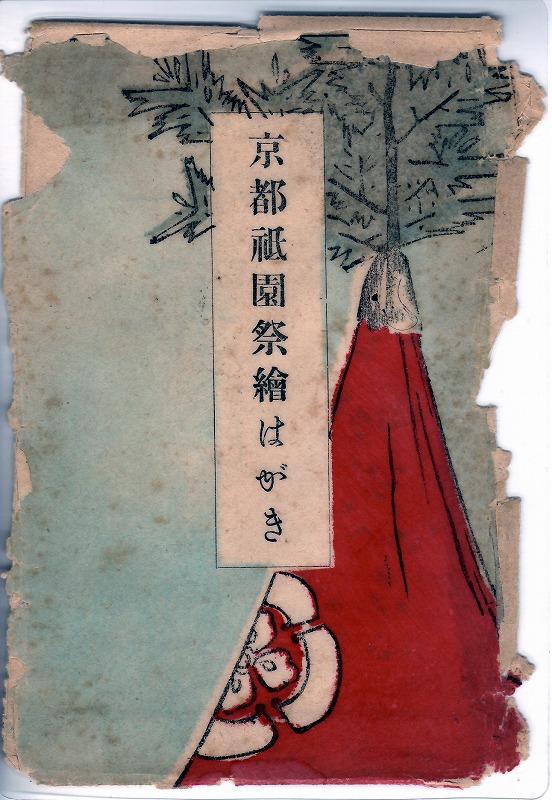 京都祇園祭繪はがき